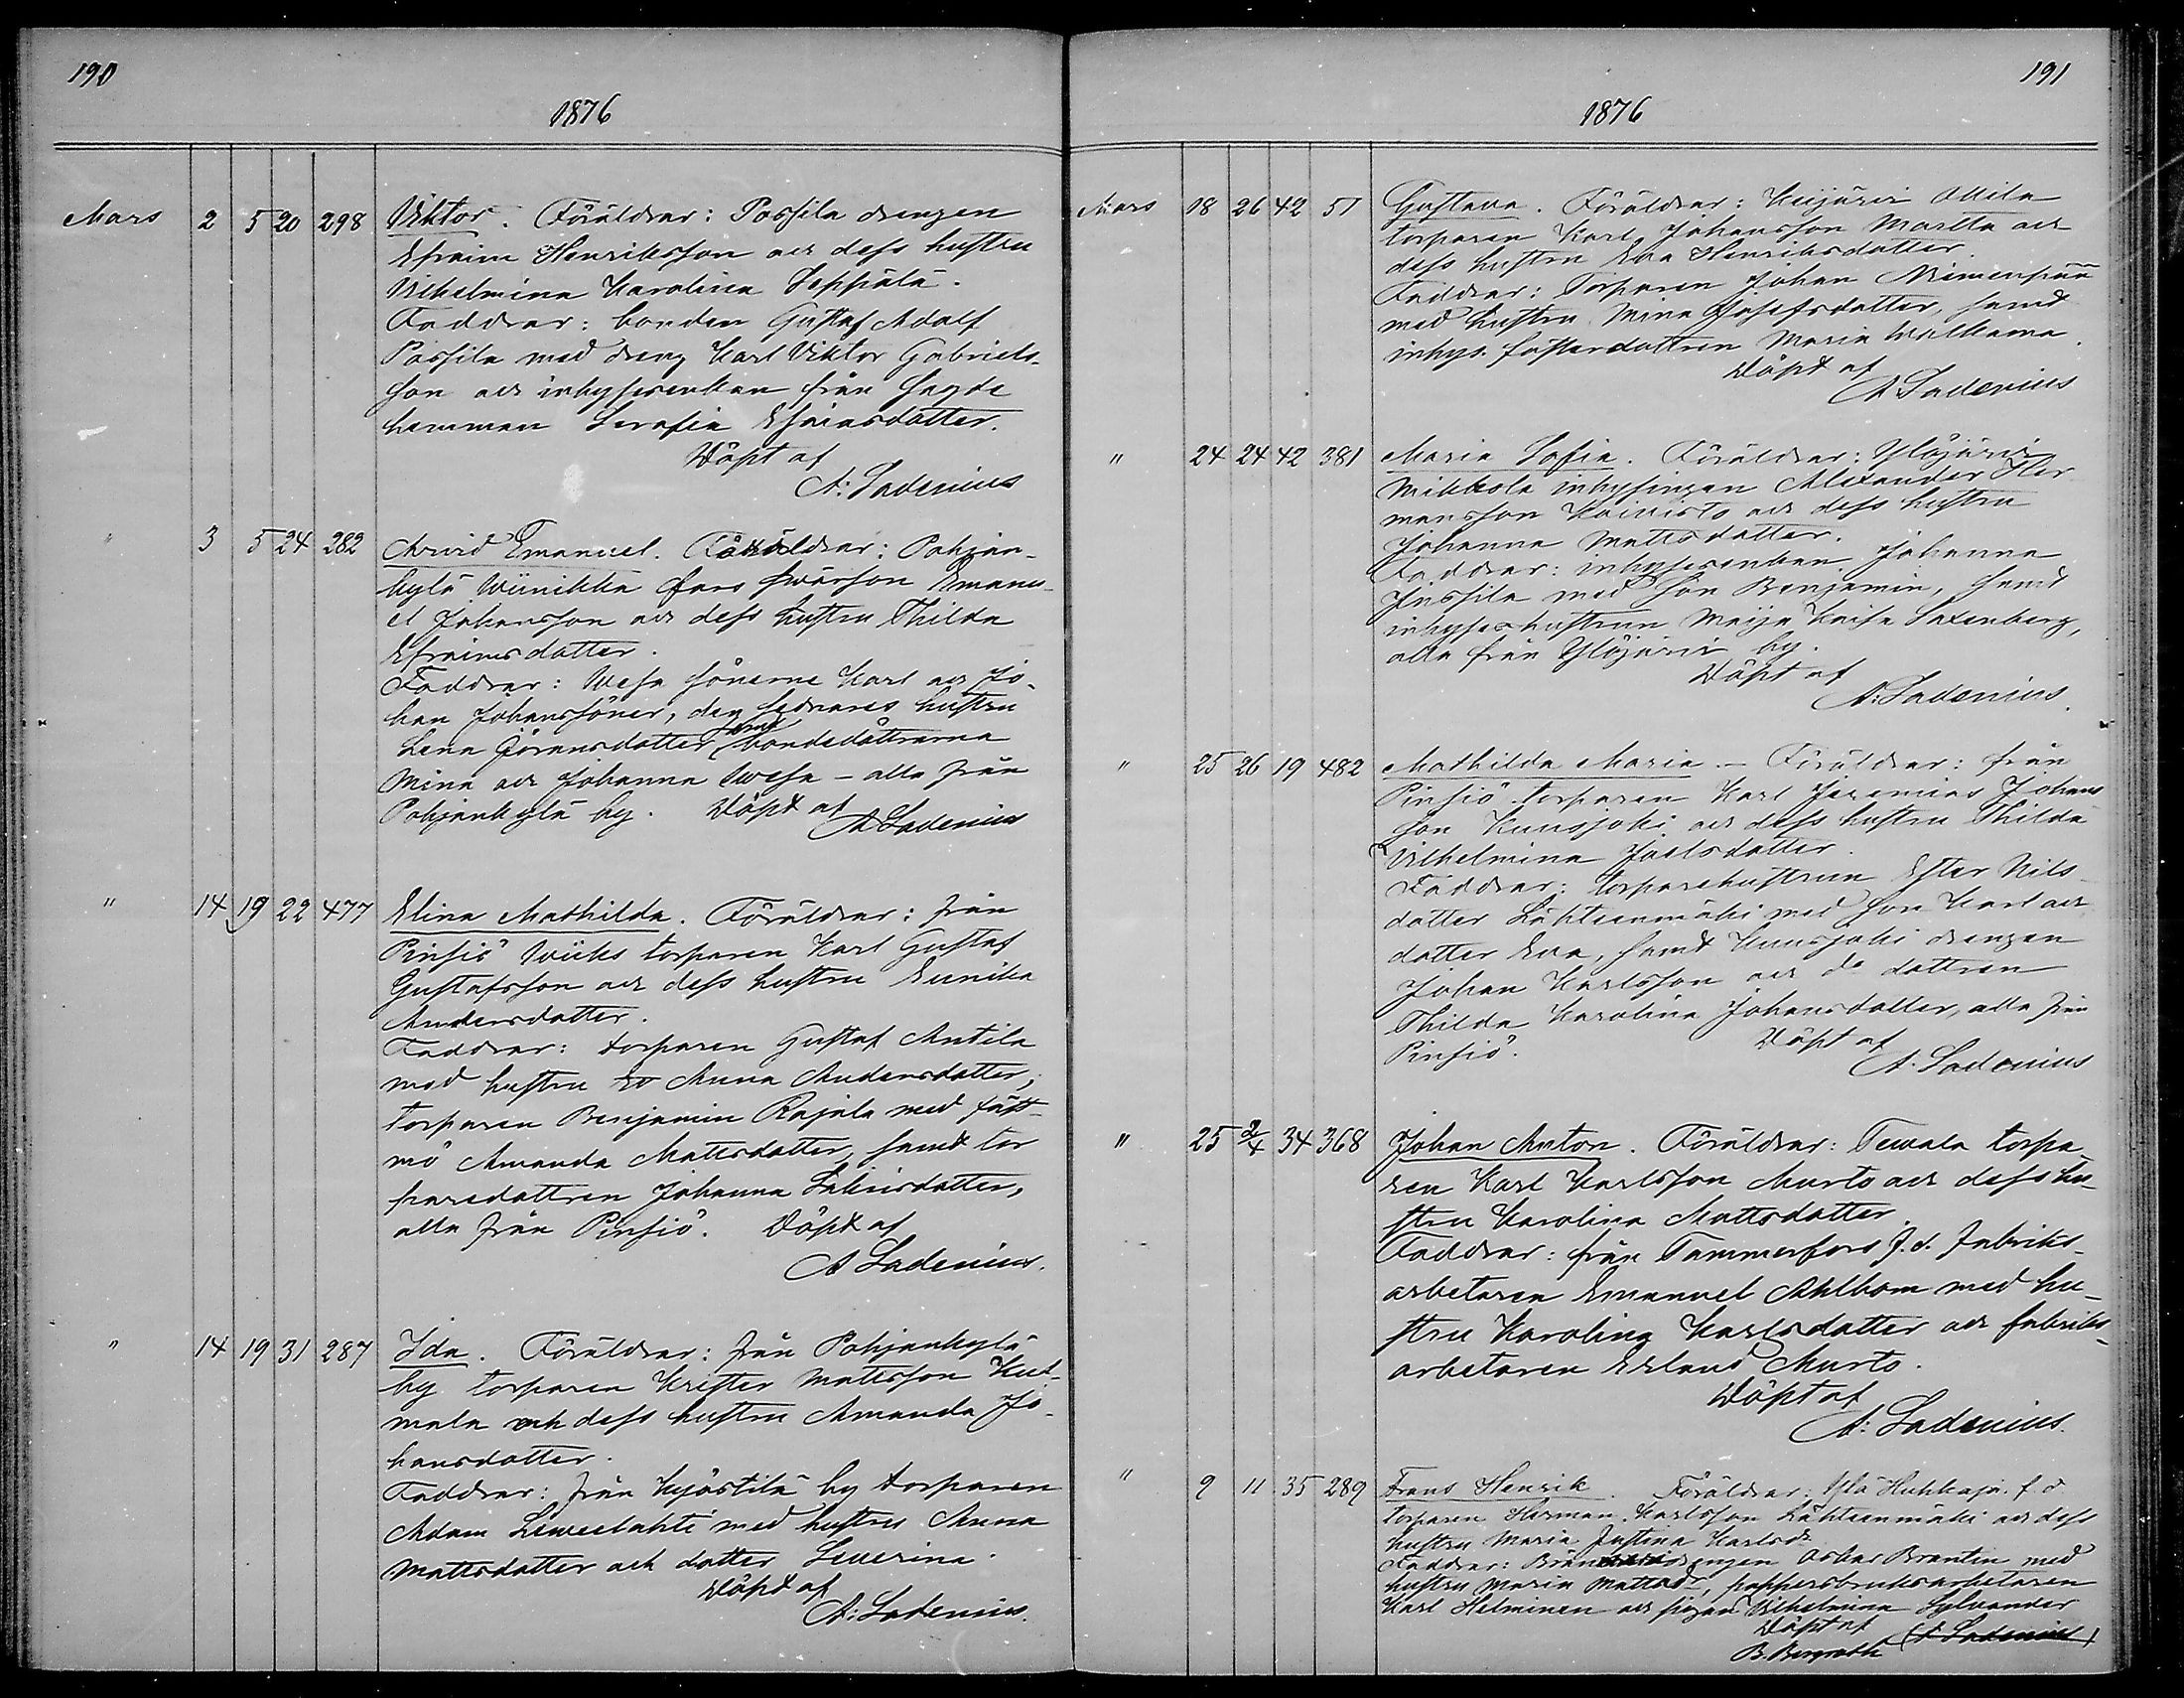 190
1876
Mars 2 5 20 298 Viktor. Föräldrar: Possila drengen
Efraim Henriksson och dess hustru
Vilhelmina Karolina Seppälä.
Faddrar: bonden Gustaf Adolf
Possila med dreng Karl Viktor Gabriels-
son och inhysesenkan från sagde
hemman Serafia Esaiasdotter.
Döpt af
A: Ladenius
" 3 5 24 282 Arvid Emanuel. Föräldrar: Pohjan-
kylä Wiinikka fars swärson Emanu-
el Johansson och dess hustru Thilda
Efraimsdotter.
Faddrar: Wesa sönerne Karl och Jo-
han Johanssöner, den sednares hustru
Lena Göransdotter samt bondedöttrarna
Mina och Johanna Wesa - alla från
Pohjankylä by. Döpt af
A Ladenius
" 14 19 22 477 Elina Mathilda. Föräldrar: från
Pinsiö Wiiks torparen Karl Gustaf
Gustafsson och dess hustru Eunika
Andersdotter.
Faddrar: torparen Gustaf Antila
med hustru Anna Andersdotter,
torparen Benjamin Rajala med fäst-
mö Amanda Mattsdotter, samt tor
paredottren Johanna Sakrisdotter,
alla från Pinsiö. Döpt af
A Ladenius.
" 14 19 31 287 Ida. Föräldrar: från Pohjankylä
by torparen Krister Mattsson Huh-
mala och dess hustru Amanda Jo-
hansdotter.
Faddrar: från Kyöstilä by torparen
Adam Liweelahti med hustru Anna
Mattsdotter och dotter Severina.
Döpt af
A: Ladenius.
191
1876
Mars 18 26 42 51 Gustava. Föräldrar: Keijärvi Ollila
torparen Karl Johansson Martta och
dess hustru Eva Henriksdotter.
Faddrar: Torparen Johan Niemenpää
med hustru Mina Josefsdotter, samt
inhys. fosterdottren Maria Wilhelmina.
Döpt af
A Ladenius
" 24 24 42 381 Maria Sofia. Föräldrar: Ylöjärvi
Mikkola inhysingen Alexander Her
mansson Koivisto och dess hustru
Johanna Mattsdotter.
Faddrar: inhysesenkan Johanna
Jussila med son Benjamin, samt
inhyseshustrun Maija Kaisa Saxenberg,
alla från Ylöjärvi by.
Döpt af
A: Ladenius.
" 25 26 19 482 Mathilda Maria. - Föräldrar: från
Pinsiö torparen Karl Jeremias Johans
son Kuusjoki och dess hustru Thilda
Vilhelmina Joelsdotter.
Faddrar: torparehustrun Ester Nils-
dotter Lähteenmäki med son Karl och
dotter Eva, samt Kuusjoki drengen
Johan Karlsson och do dottren
Thilda Karolina Johansdotter, alla från
Pinsiö. Döpt af
A. Ladenius
" 25 2/4 34 368 Johan Anton. Föräldrar: Tewala torpa-
ren Karl Karlsson Murto och dess hu-
stru Karolina Mattsdotter.
Faddrar: från Tammerfors f.d. fabriks-
arbetaren Emanuel Ahlbom med hu-
stru Karolina Karlsdotter och fabriks-
arbetaren Erland Murto.
Döpt af
A: Ladenius.
" 9 11 35 289 Frans Henrik. Föräldrar: Ylä Huhkaja f.d
torparen Herman Karlsson Lähteenmäki och dess
hustru Maria Justina Karlsdr.
Faddrar: drengen Oskar Brantin med
hustru Maria Mattsdr, pappersbruksarbetaren
Karl Helminen och pigan Vilhelmina Sylvander
Döpt af (A Ladenius)
B. Bergroth